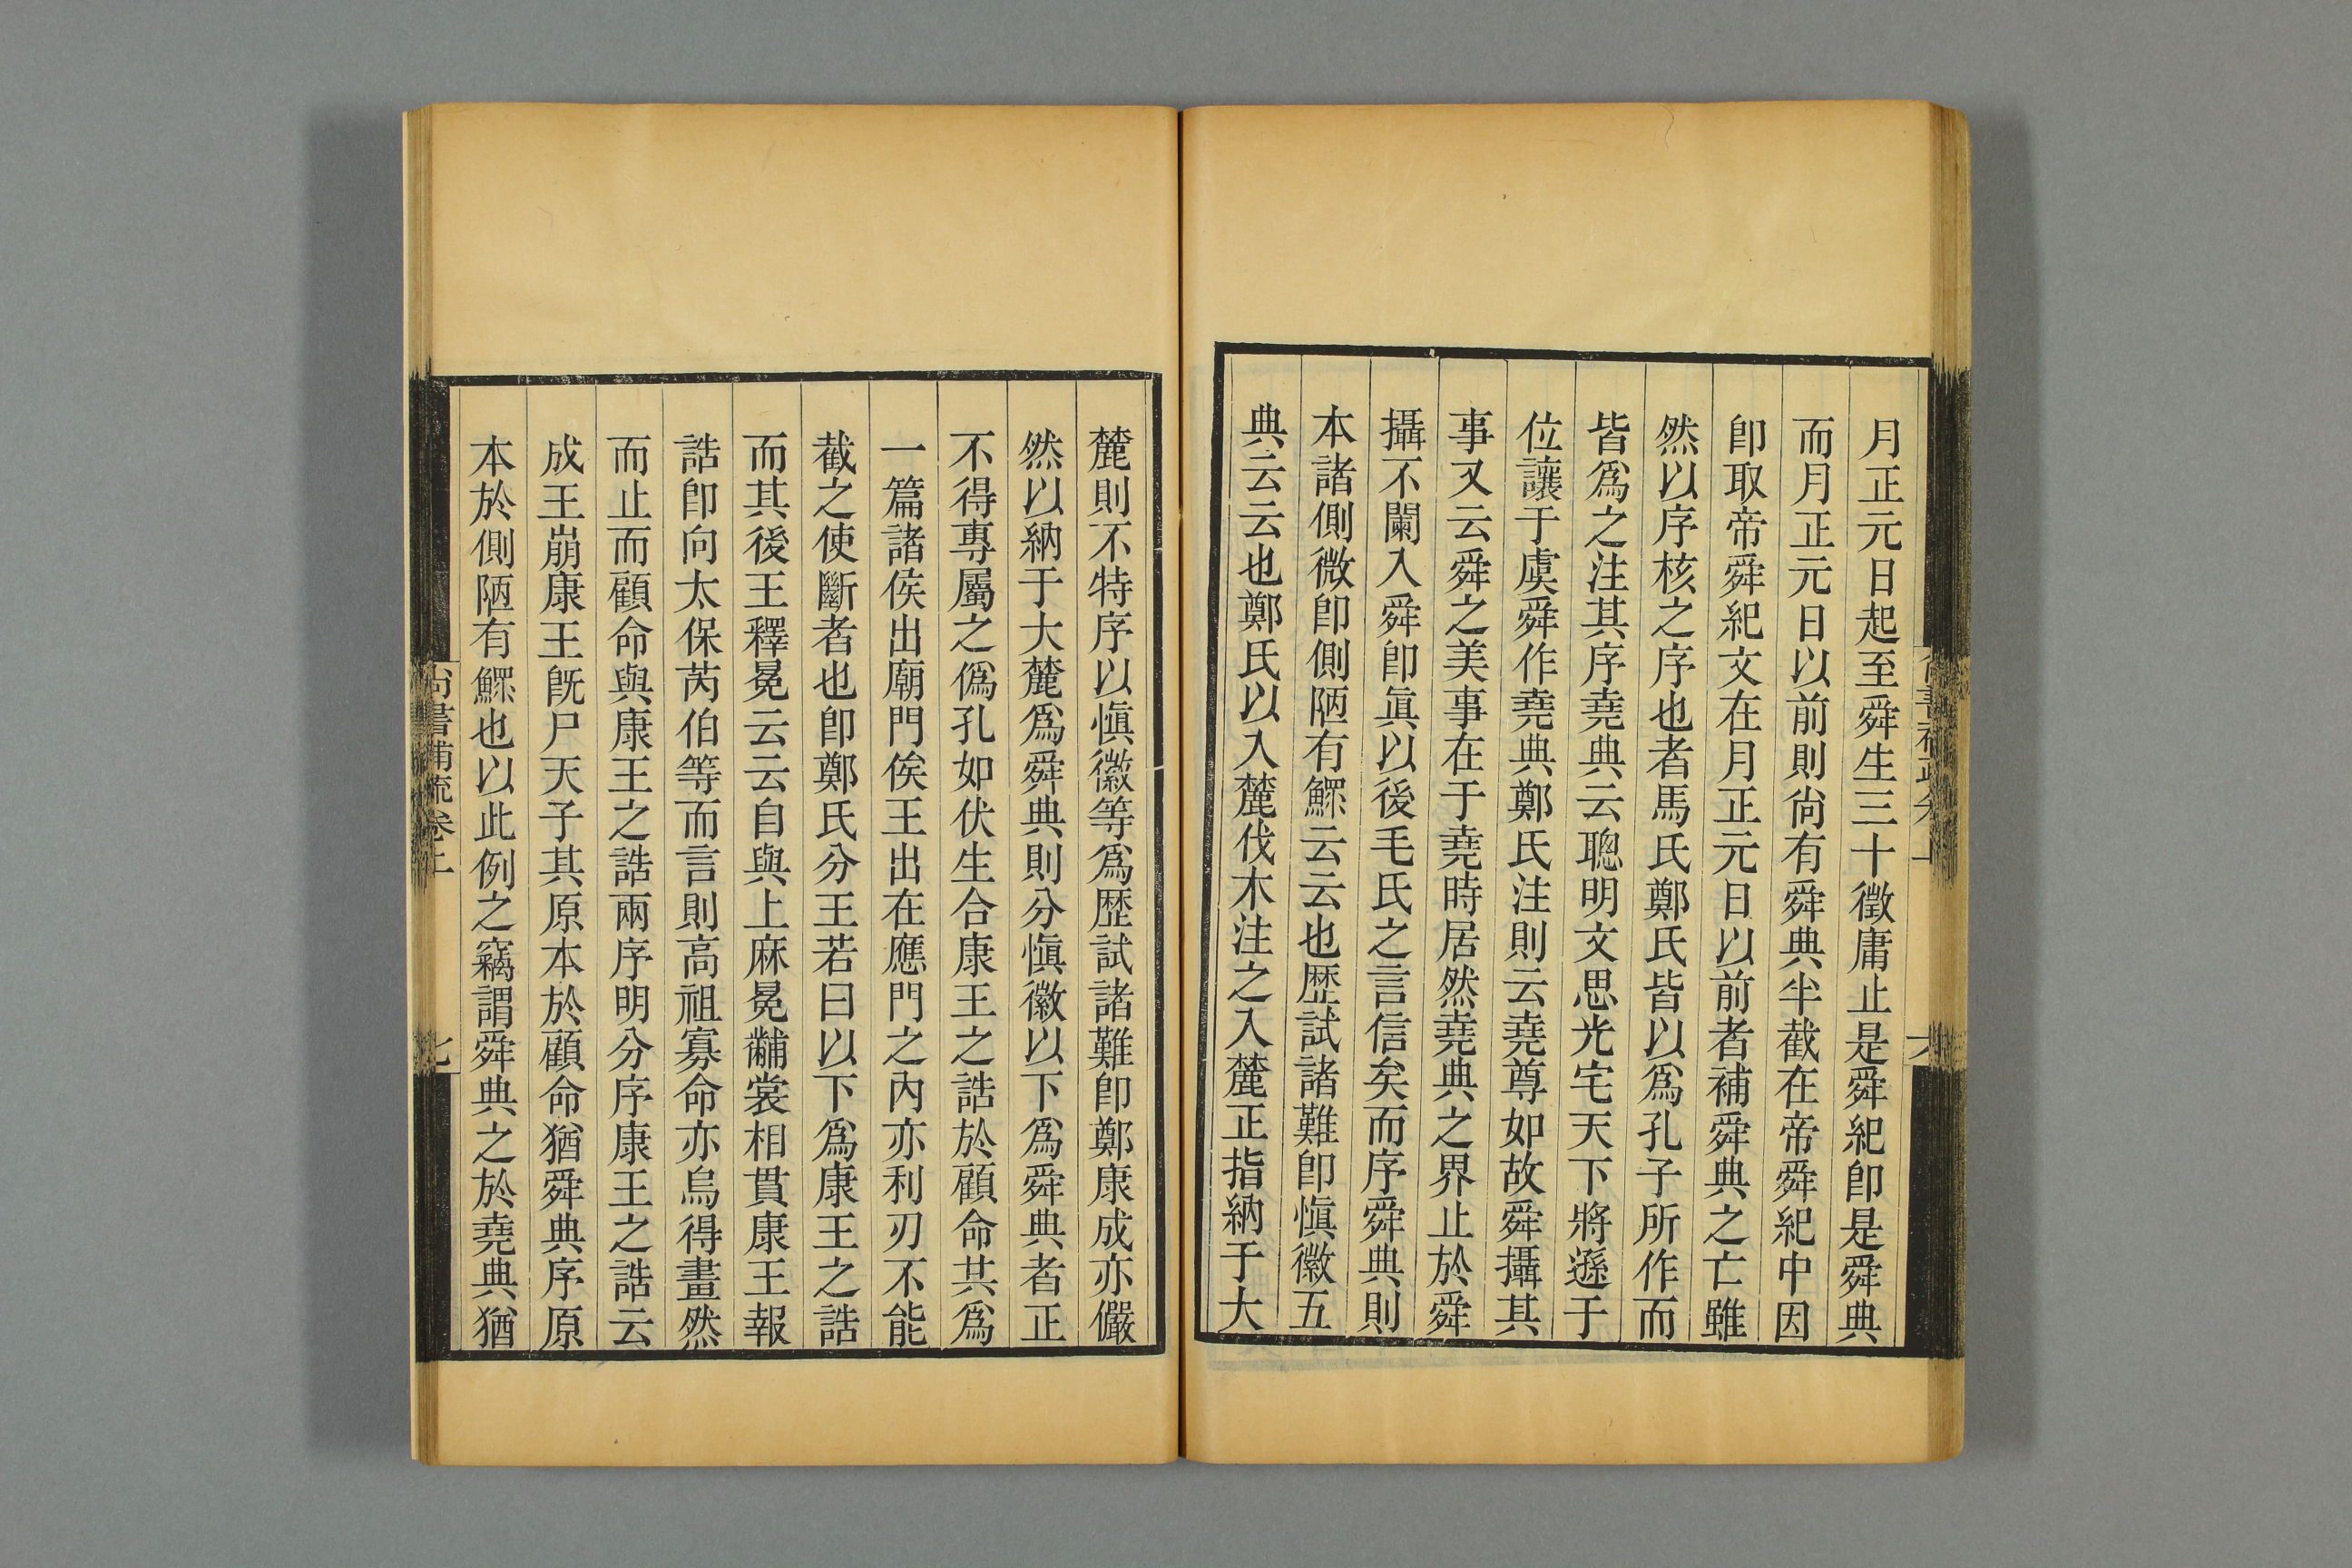 月正元日起至舜生三十徵庸止是舜紀卽是舜典
而月正元日以前則尙有舜典半截在帝舜紀中因
卽取帝舜紀文在月正元日以前者補舜典之亡雖
然以序核之序也者馬氏鄭氏皆以爲孔子所作而
皆爲之注其序堯典云聰明文思光宅天下將遜于
位讓于虞舜作堯典鄭氏注則云堯尊如故舜攝其
事又云舜之美事在于堯時居然堯典之界止於舜
攝不闌入舜卽眞以後毛氏之言信矣而序舜典則
本諸側微卽側陋有鰥云云也歷試諸難卽愼徽五
典云云也鄭氏以入麓伐木注之入麓正指納于大
麓則不特序以愼徽等爲歷試諸難卽鄭康成亦儼
然以納于大麓爲舜典則分愼徽以下爲舜典者正
不得專屬之僞孔如伏生合康王之誥於顧命共爲
一篇諸侯出廟門俟王出在應門之內亦利刃不能
截之使斷者也卽鄭氏分王若曰以下爲康王之誥
而其後王釋冕云云自與上麻冕黼裳相貫康王報
誥卽向太保芮伯等而言則高祖寡命亦烏得畫然
而止而顧命與康王之誥兩序明分序康王之誥云
成王崩康王旣尸天子其原本於顧命猶舜典序原
本於側陋有鰥也以此例之竊謂舜典之於堯典猶
尚書補疏卷上
七